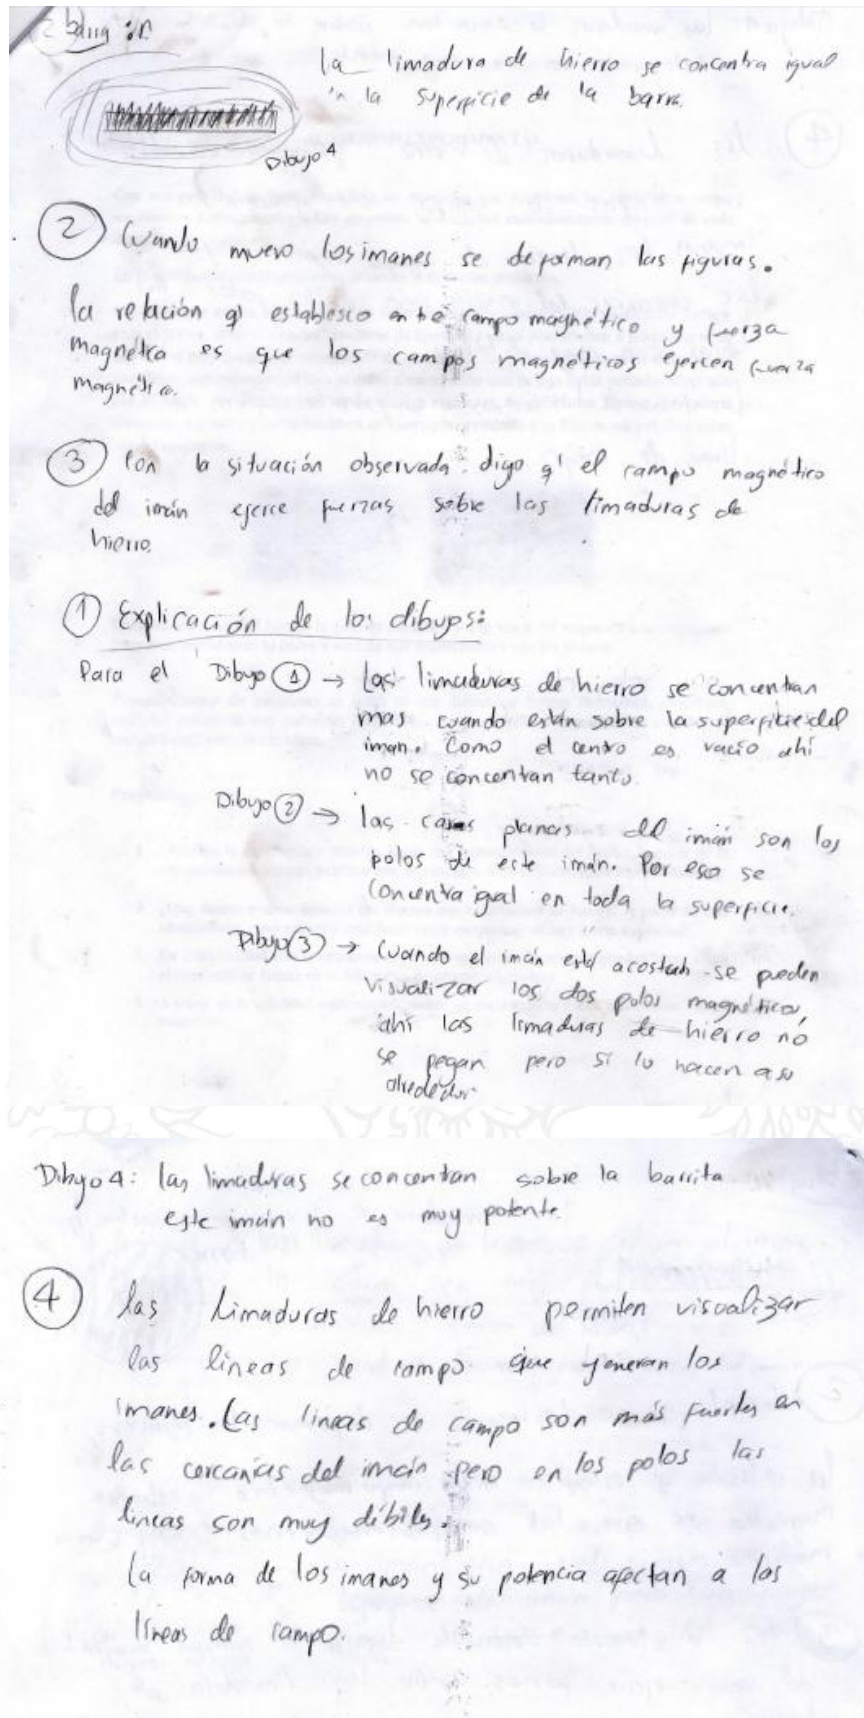 La limadura de hierro se concentra igual
en la superficie de la barra.
Dibujo 4
② Cuando muevo los imanes se deforman las figuras.
la relación q' establesco entre campo magnético y fuerza
magnética es que los campos magnéticos ejercen fuerza
magnética.
③ Con la situación observada digo q' el campo magnético
del imán ejerce fuerzas sobre las limaduras de
hierro.
① Explicación de los dibujos:
Para el Dibujo ① → Las limaduras de hierro se concentran
mas cuando están sobre la superficie del
iman. Como el centro es vacio ahí
no se concentran tanto.
Dibujo ② → las caras planas del imán son los
polos de este imán. Por eso se
concentra igual en toda la superficie.
Dibujo ③ → Cuando el imán está acostado se pueden
visualizar los dos polos magnéticos,
ahí las limaduras de hierro no
se pegan pero si lo hacen a su
alrededor.
Dibujo 4: las limaduras se concentran sobre la barrita
este imán no es muy potente.
④ Las limaduras de hierro permiten visualizar
las lineas de campo que generan los
imanes. Las lineas de campo son más fuertes en
las cercanías del imán pero en los polos las
lineas son muy débiles.
La forma de los imanes y su potencia afectan a las
líneas de campo.